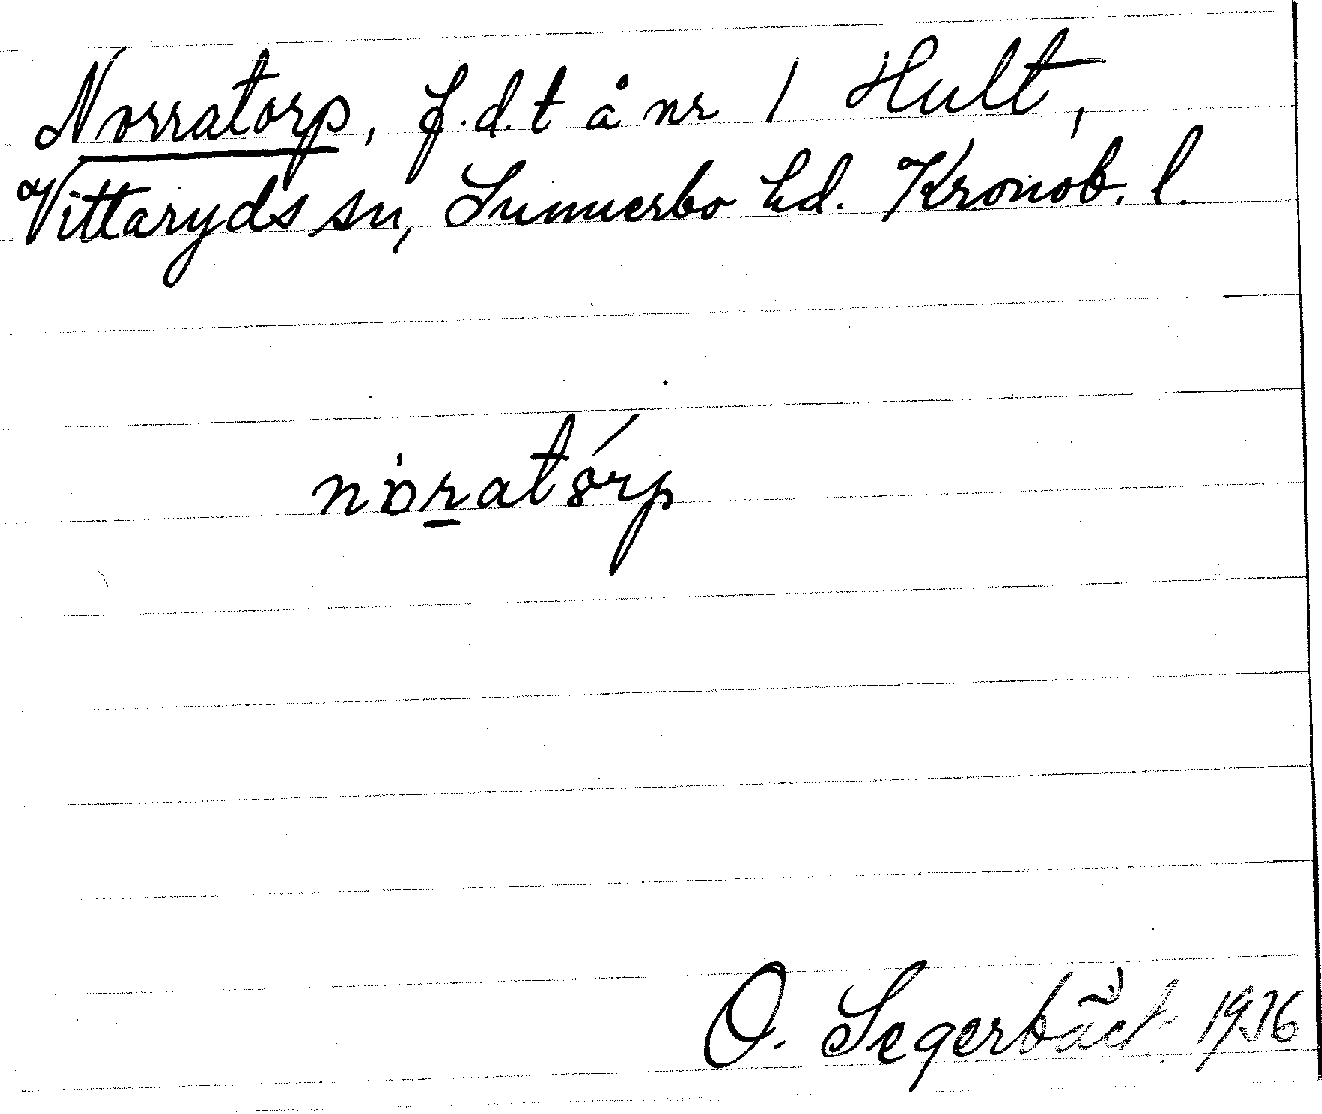 Norratorp, f.d.t å nr 1 Hult,
Vittaryds sn, Sunnerbo hd. Kronob. l.
nòratórp
O. Segerbäck 1936